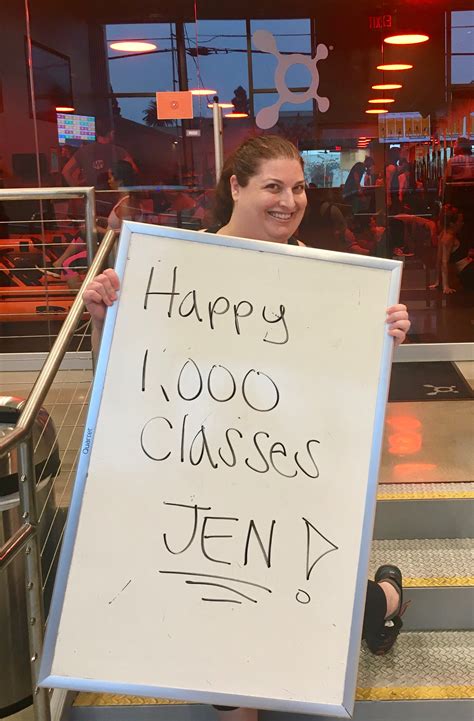 EXIT
Happy
1,000
Classes
JEN!
Quartet